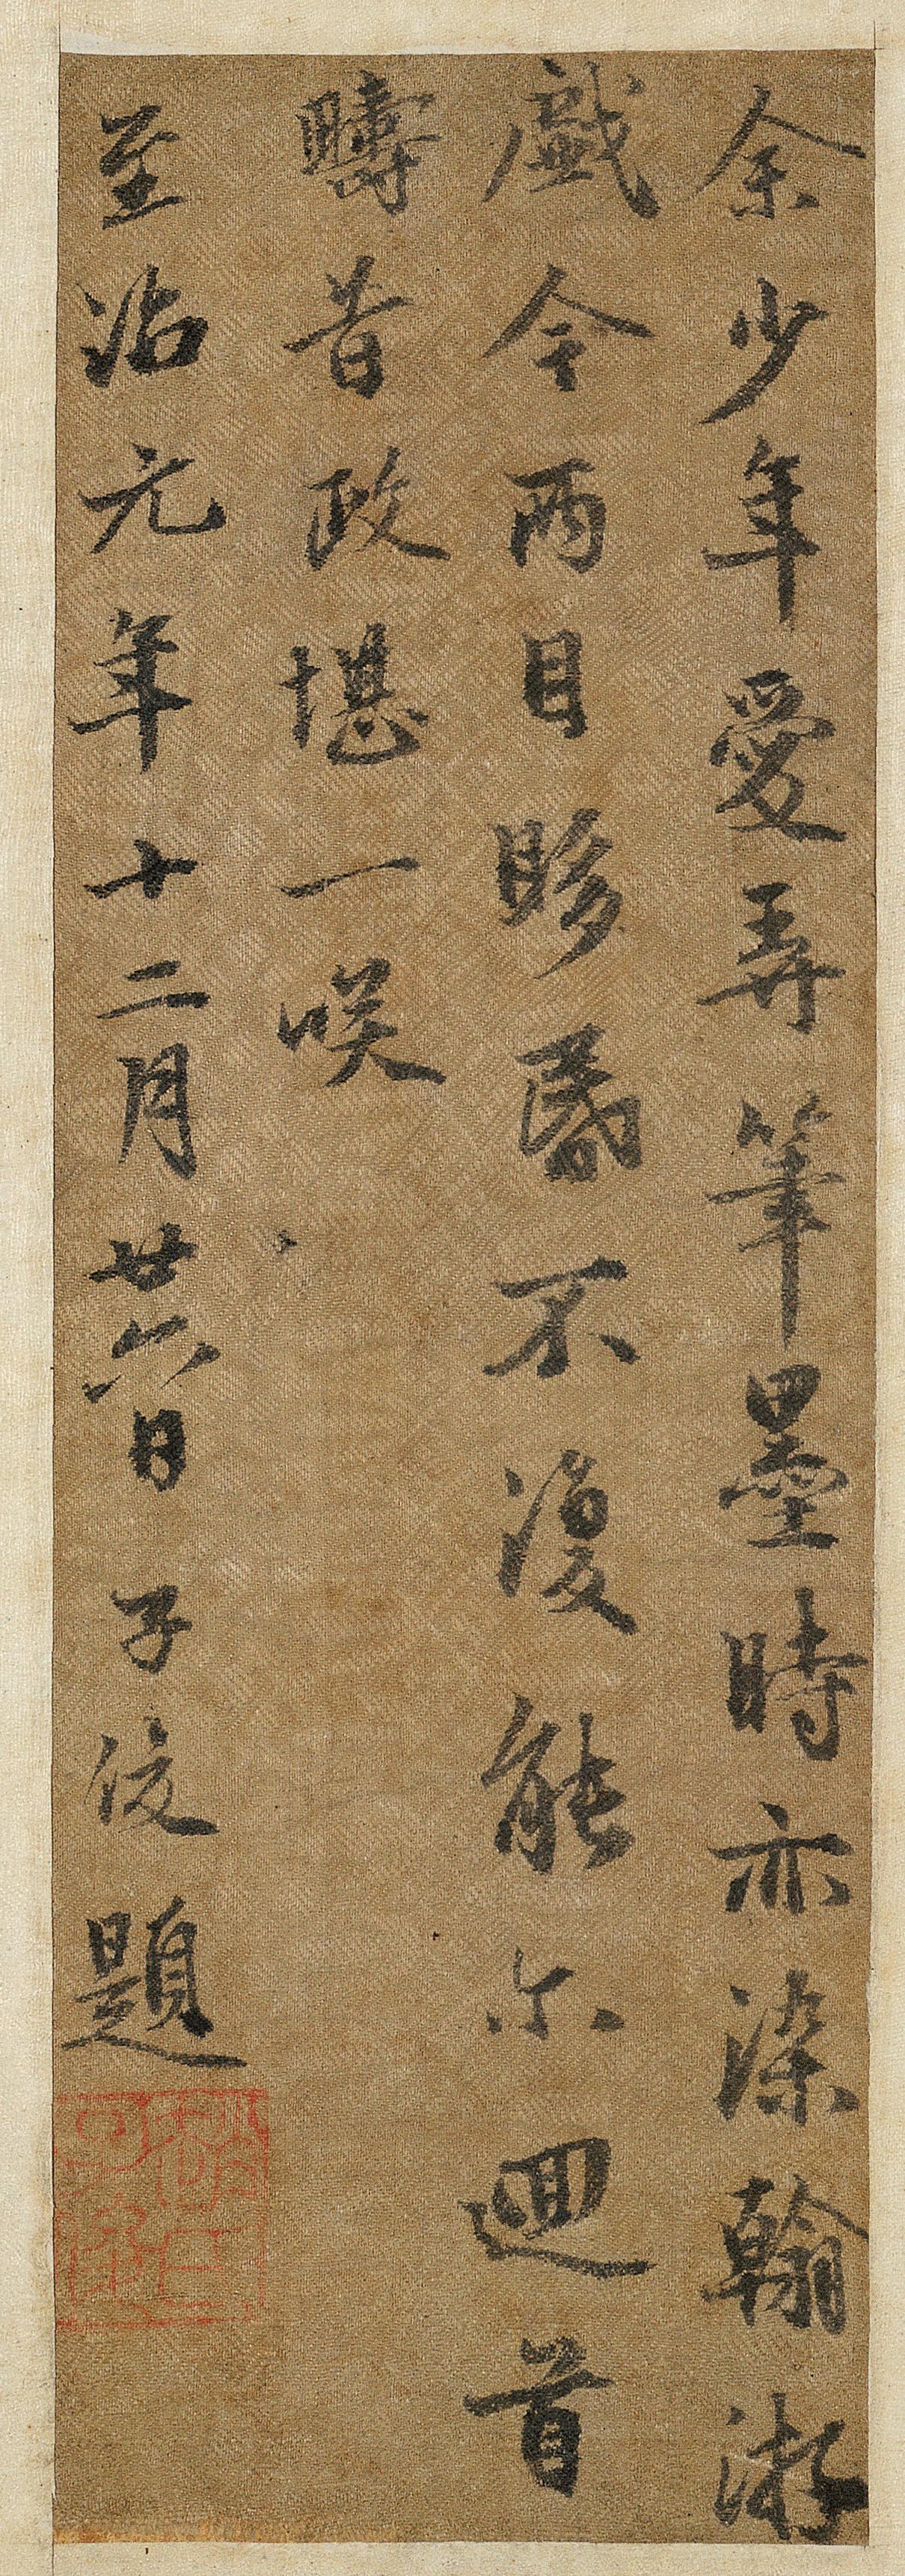 余少年愛弄筆墨時亦染翰游
戲今兩目眵昬不復能尔迴首
疇昔政堪一咲
至治元年十二月廿六日子俊題